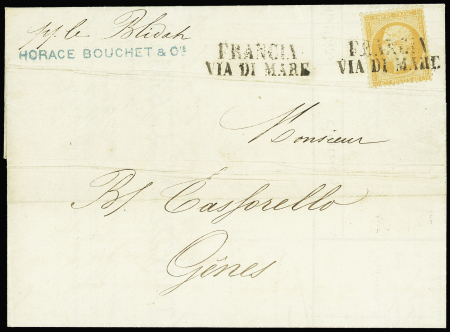 pp. le Blidah
HORACE BOUCHET & Cie
FRANCIA
VIA DI MARE
FRANCIA
VIA DI MARE
Monsieur
Bt. Tassorello
Gênes